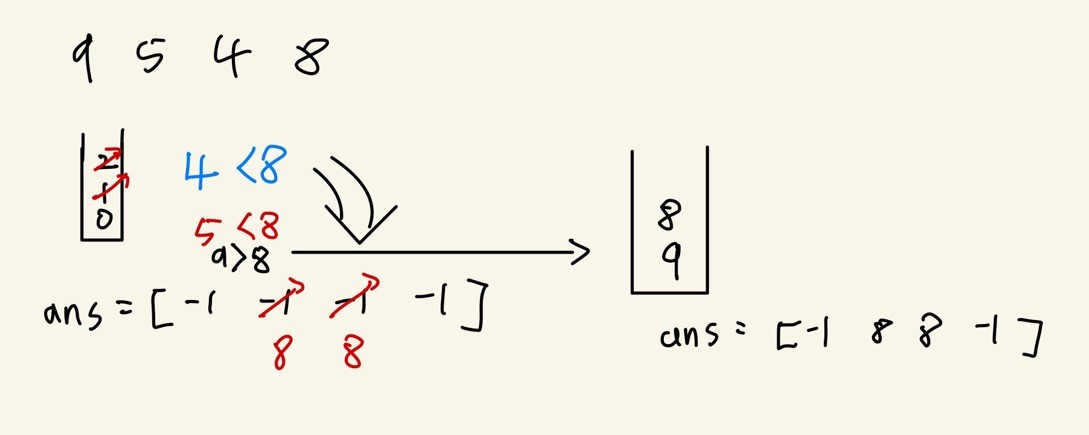 9 5 4 8
2
1
0
4 < 8
5 < 8
9 > 8
ans = [ -1 -1 -1 -1 ]
8 8
8
9
ans = [ -1 8 8 -1 ]